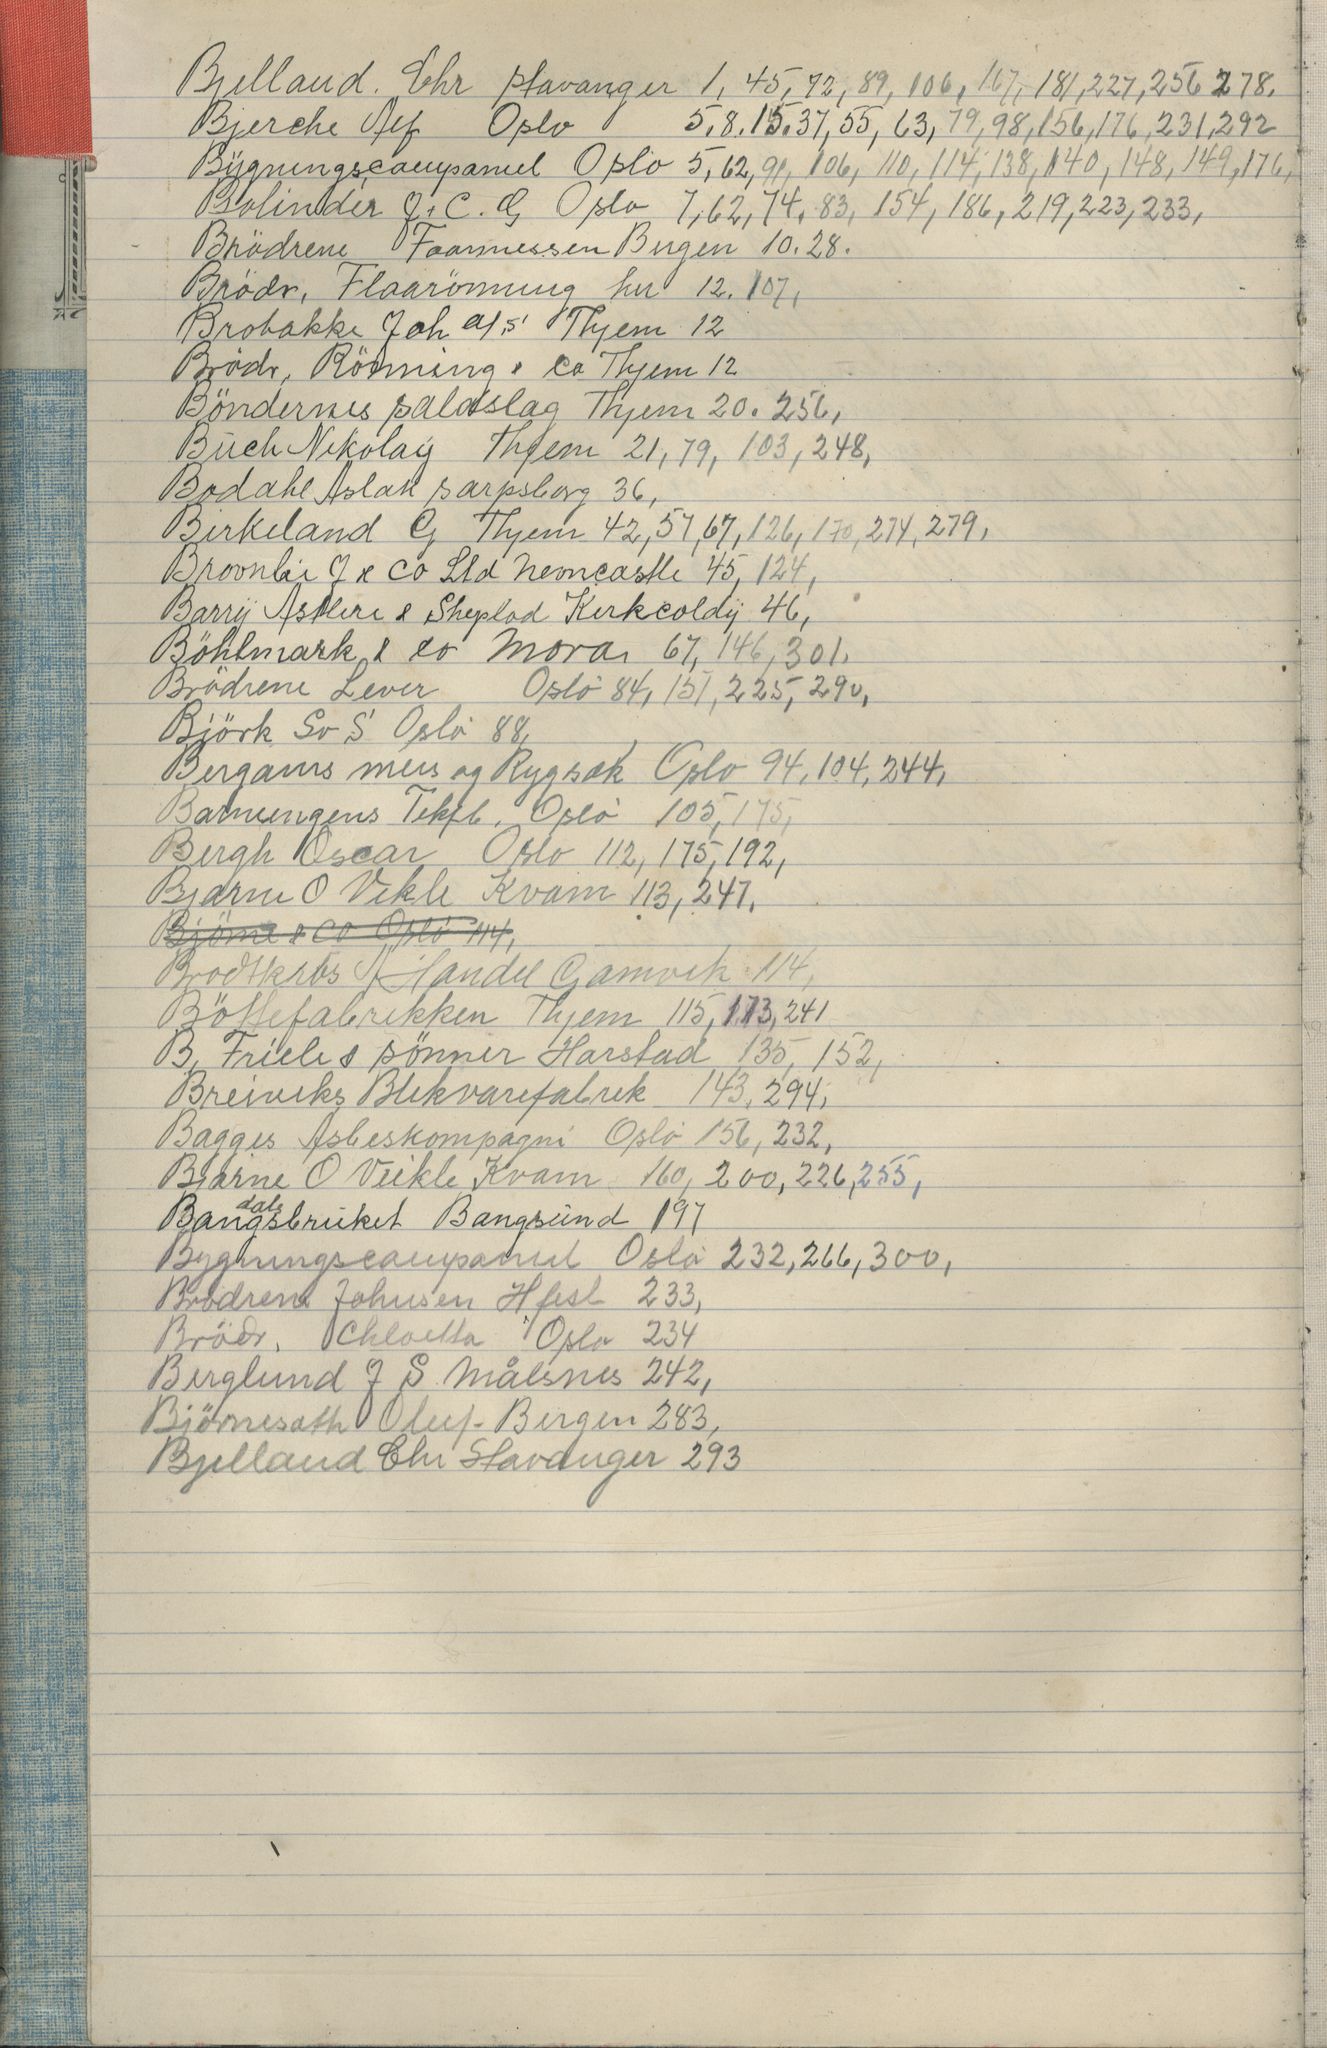 Bjelland. Chr Stavanger 1, 45, 72, 89, 106, 167, 181, 227, 256 278.
Bjerche Alf Oslo 5. 8. 15. 37, 55, 63, 79, 98, 156, 176, 231, 292
Bygningscompaniet Oslo 5, 62, 91, 106, 110, 114, 138, 140, 148, 149, 176,
Bolinder J. C. G Oslo 7, 62, 74, 83, 154, 186, 219, 223, 233,
Brödrene Faannessen Bergen 10. 28.
Brödr, Flaarönning her 12. 107,
Brobakke Joh A/S Thjem 12
Brödr, Rönning & Co Thjem 12
Böndernes Salgslag Thjem 20. 256,
Buch Nikolay Thjem 21, 79, 103, 248,
Bodahl Aslak Sarpsborg 36,
Birkeland G Thjem 42, 57, 67, 126, 170, 274, 279,
J & Co Ltd 45, 124,
Barry & Kirkcoldy 46,
Böhlmark & Co Mora 67, 146, 301.
Brödrene Lever Oslo 84, 151, 225, 290,
Björk So S Oslo 88,
Bergans meis og Rygsæk Oslo 94, 104, 244,
Barnengens Tekfb. Oslo 105, 175,
Bergh Oscar Oslo 112, 175, 192,
Bjarne O Vekle Kvam 113, 247.
Bjöme & Co Oslo 114,
Brodtkrbs Handel Gamvik 114,
Böttefabrikken Thjem 115, 173, 241
B. Friele & Sönner Harstad 135, 152,
Breiviks Blikvarefabrik 143, 294,
Bagges Asbeskompagni Oslo 156, 232,
Bjarne O Veikle Kvam 160, 200, 226, 255,
Bangdalsbruket Bangsund 197
Bygningscompaniet Oslo 232, 266, 300,
Brödrene Johnsen Hfest 233,
Brödr. Chloetta Oslo 234
Berglund J S Målsnes 242,
Oluf Bergen 283,
Bjelland Chr Stavanger 293